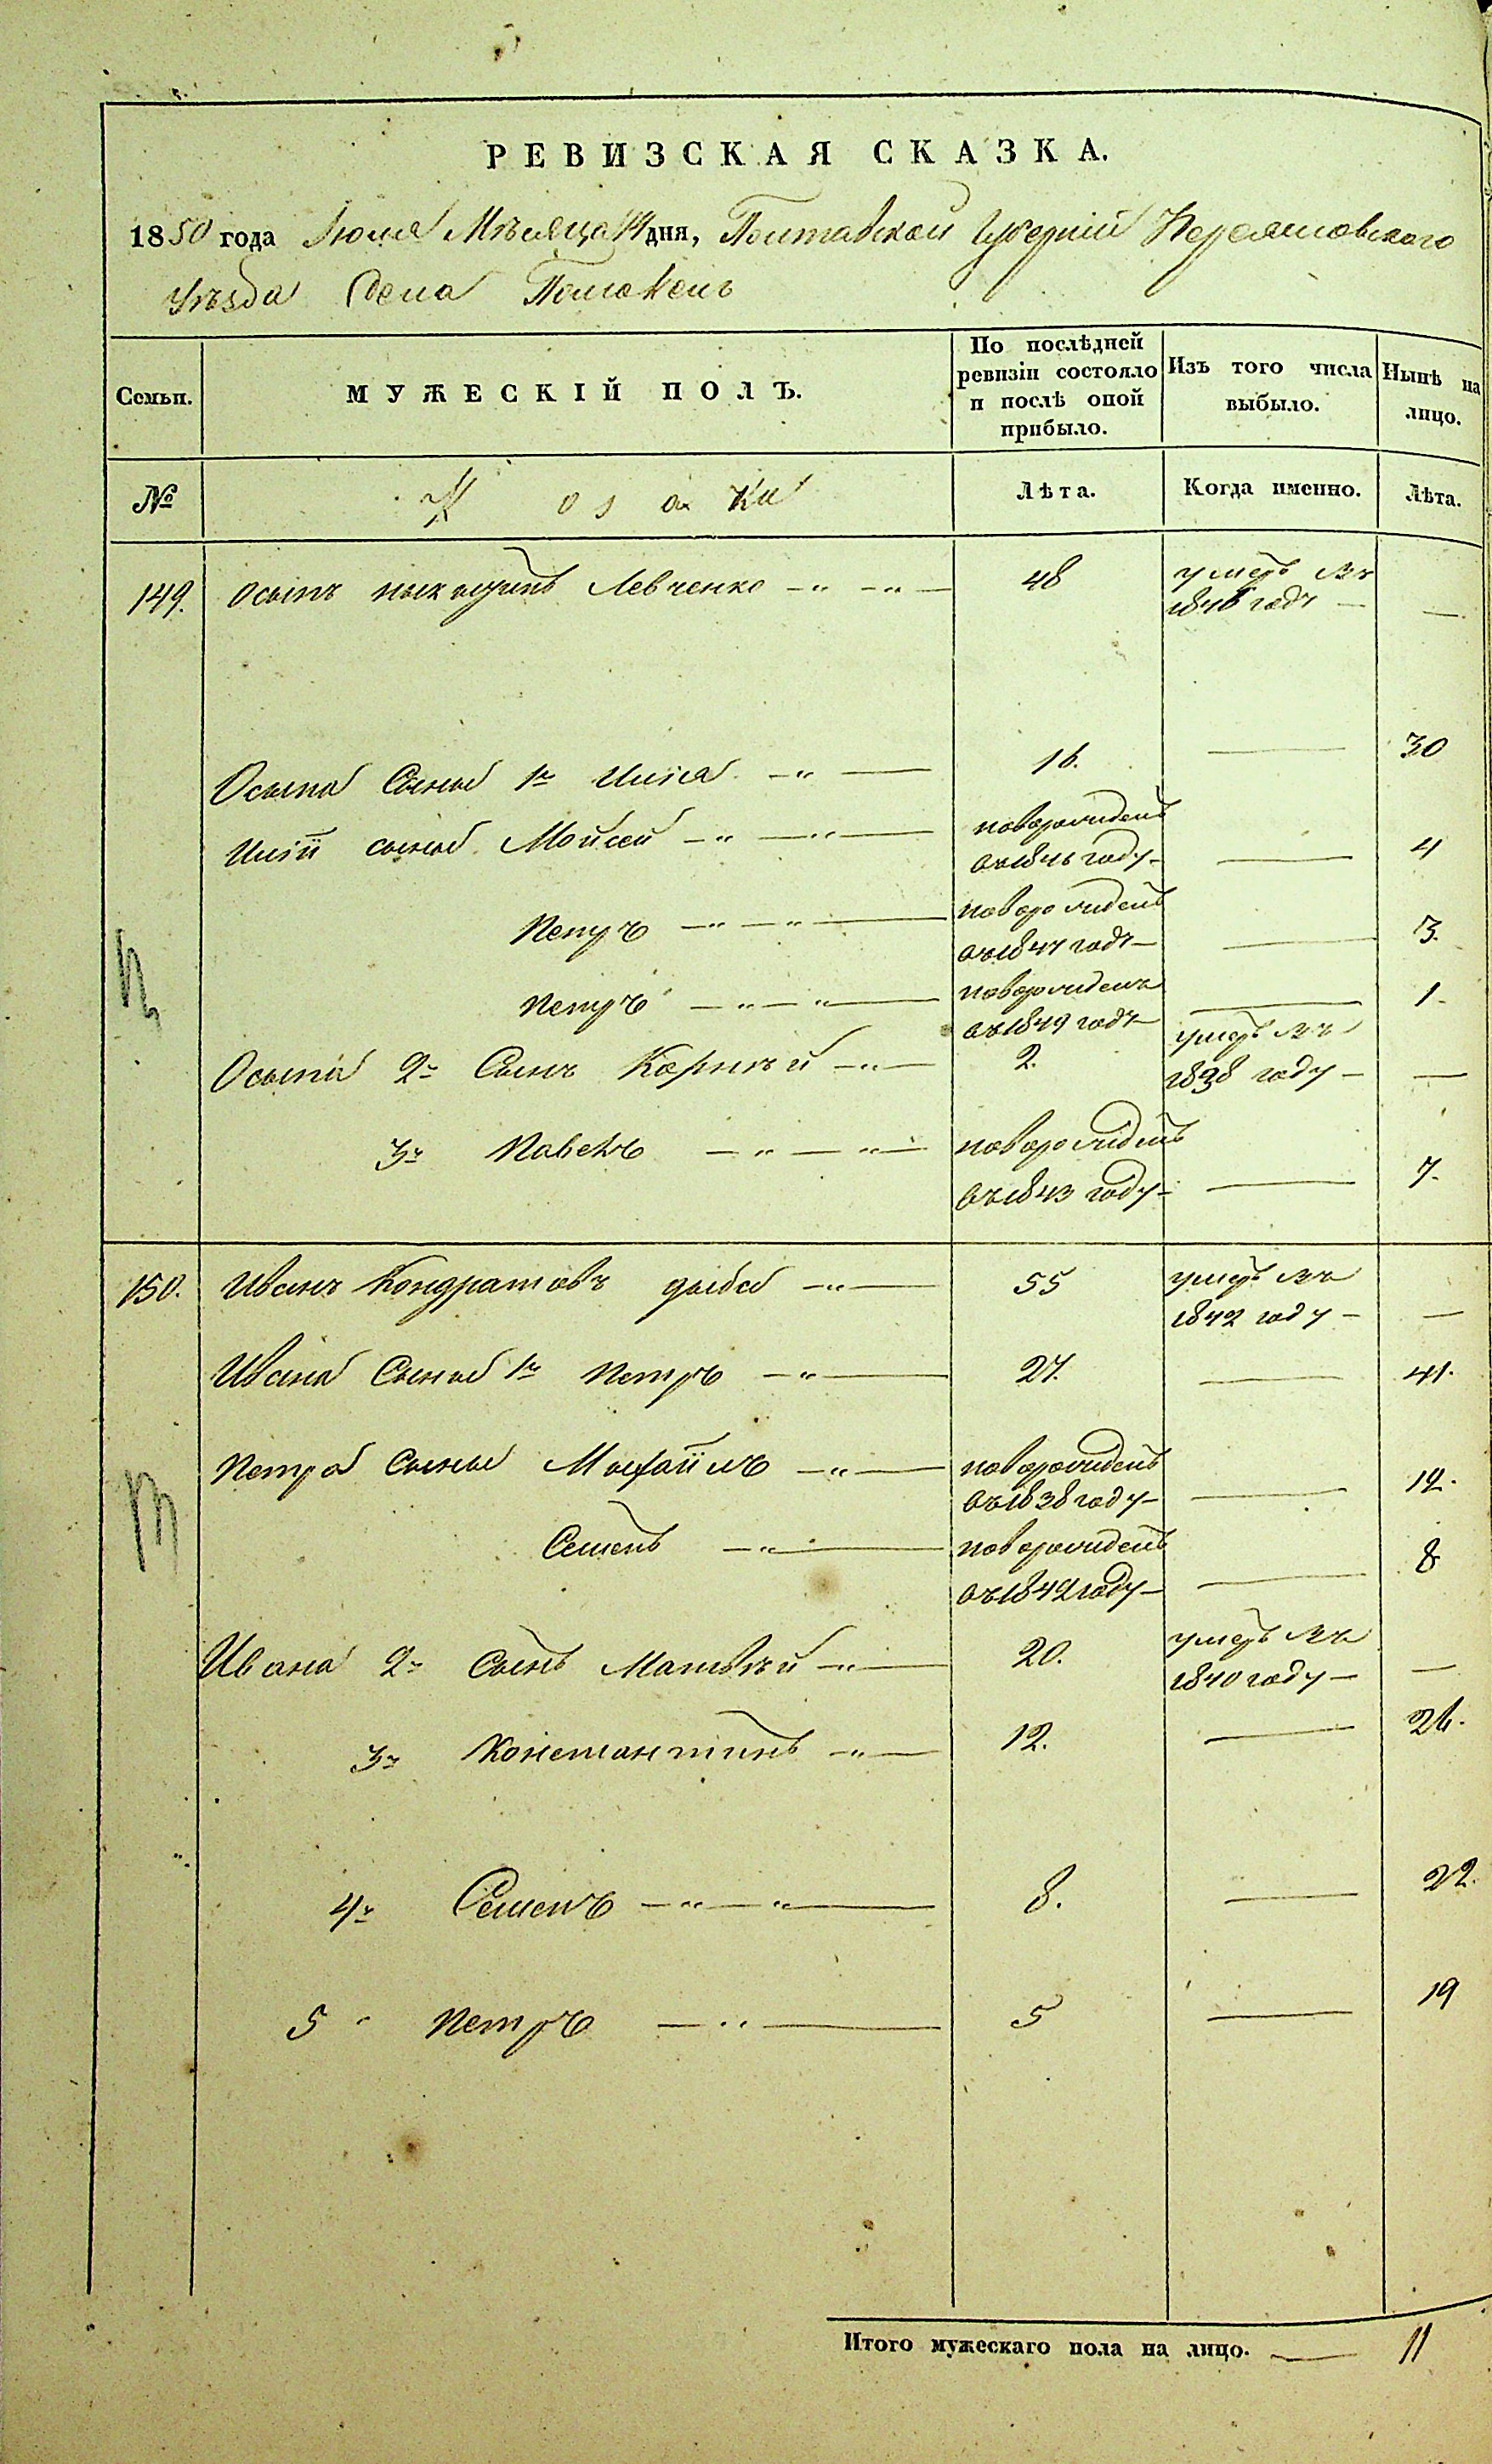 РЕВИЗСКАЯ СКАЗКА.
1850 года Июля Мѣсяца 14 дня, Полтавской Губерніи Переяславского
Уѣзда Села
Семьи. МУЖЕСКІЙ ПОЛЪ. По послѣдней ревизіи состояло и послѣ оной прибыло. Изъ того числа выбыло. Нынѣ на лицо.
№ Козаки Лѣта. Когда именно. Лѣта.
149. Осипъ Левченко —„ —„— 48 умеръ въ
1846 году — —
Осипа Сынъ 1й Илія —„— 16. — 30
Иліи сынъ Мойсей —„—„— новорожденъ
въ 1846 году — — 4
Петръ —„—„— новорожденъ
въ 1847 году — — 3.
Петръ —„—„— новорожденъ
въ 1849 году — — 1
Осипа 2й Сынъ Корнѣй —„— 2. умеръ въ
1838 году — —
3й Павелъ —„—„— новорожденъ
въ 1843 году — — 7.
150. Иванъ Кондратовъ дыба —„— 55 умеръ въ
1842 году — —
Ивана Сынъ 1й Петръ —„— 27. — 41.
Петра Сынъ Михаилъ —„— новорожденъ
въ 1838 году — — 12.
Семенъ —„— новорожденъ
въ 1842 году — — 8
Ивана 2й Сынъ Матвѣй —„— 20. умеръ въ
1840 году — —
3й Константинъ —„— 12. — 26.
4й Семенъ —„—„— 8. — 22.
5 Петръ —„— 5 — 19
Итого мужескаго пола на лицо. — 11